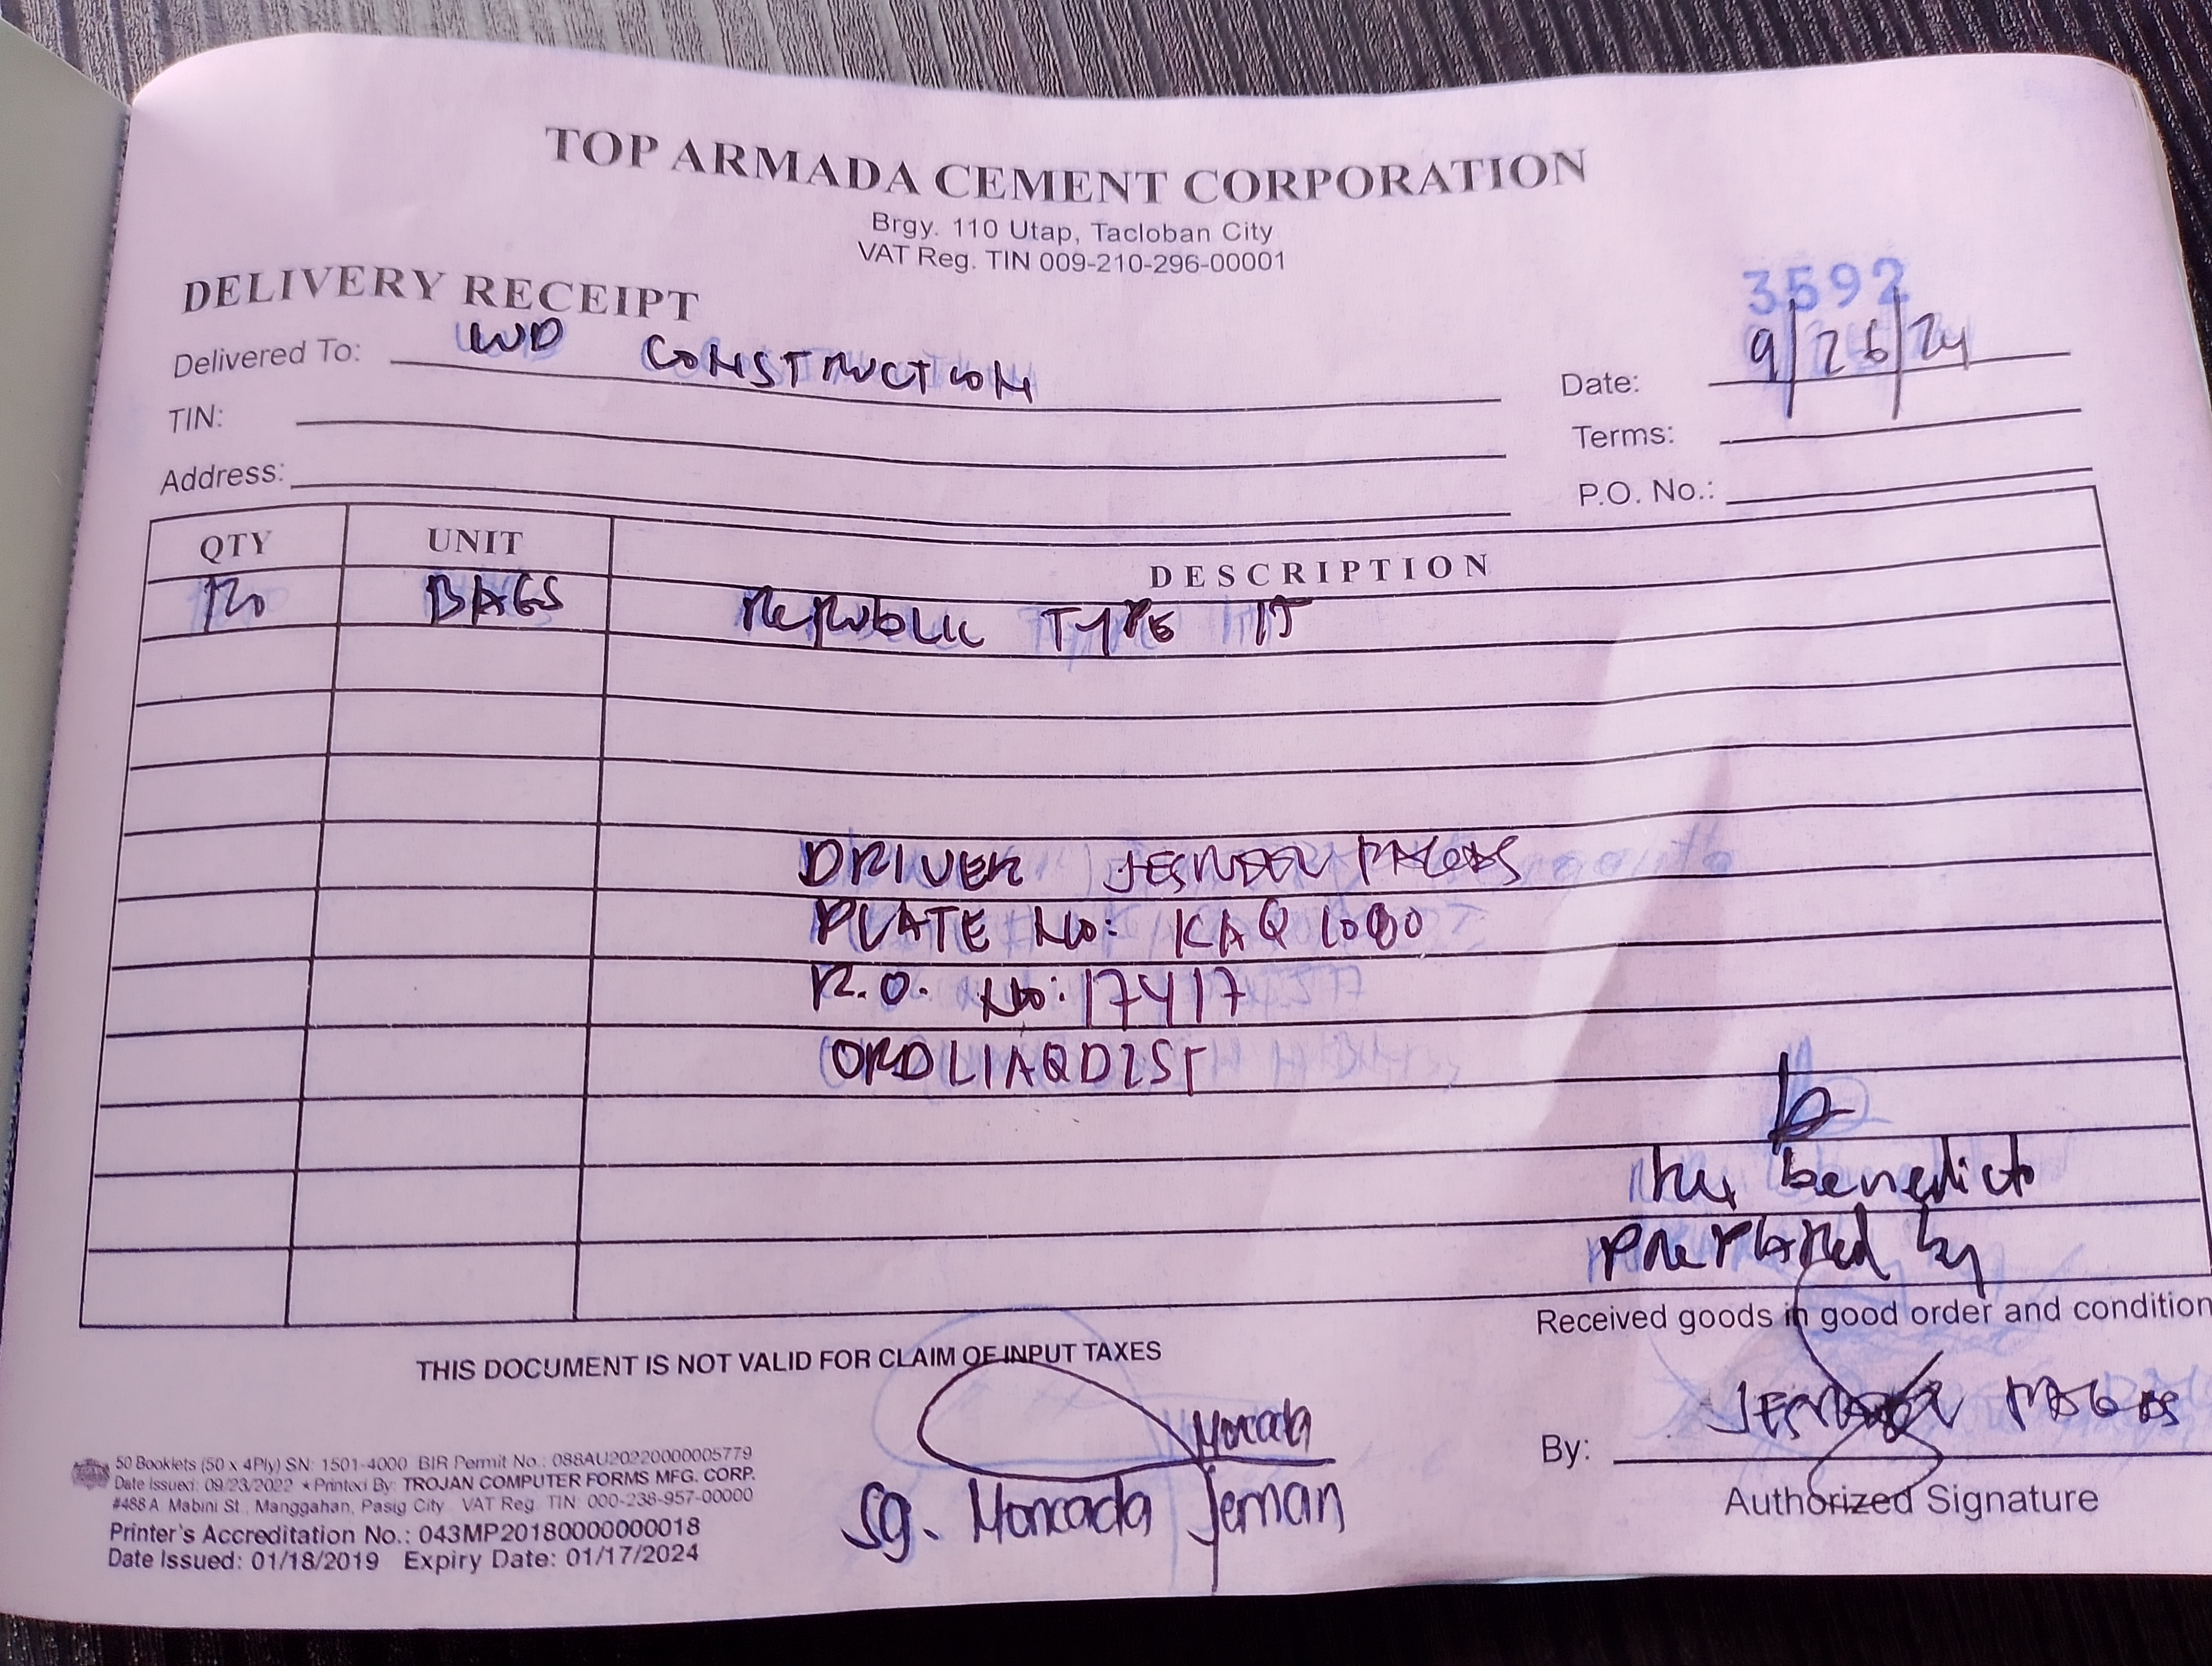 TOP ARMADA CEMENT CORPORATION
Brgy. 110 Utap, Tacloban City
VAT Reg. TIN 009-210-296-00001
DELIVERY RECEIPT
3592
Delivered To: WD CONSTRUCTION
Date: 9/26/24
TIN:
Terms:
Address:
P.O. No.:
QTY UNIT DESCRIPTION
BAGS REPUBLIC TYPE
DRIVER
PLATE No: KAQ 1080
R.O. No: 17417
benedicto
prepared by
Received goods in good order and condition
THIS DOCUMENT IS NOT VALID FOR CLAIM OF INPUT TAXES
By:
Authorized Signature
Sg. Moncada Jernan
50 Booklets (50 x 4Ply) SN: 1501-4000 BIR Permit No.: 088AU20220000005779
Date Issued: 09/23/2022 * Printed By: TROJAN COMPUTER FORMS MFG. CORP.
#488 A. Mabini St., Manggahan, Pasig City VAT Reg. TIN: 000-238-957-00000
Printer's Accreditation No.: 043MP20180000000018
Date Issued: 01/18/2019 Expiry Date: 01/17/2024